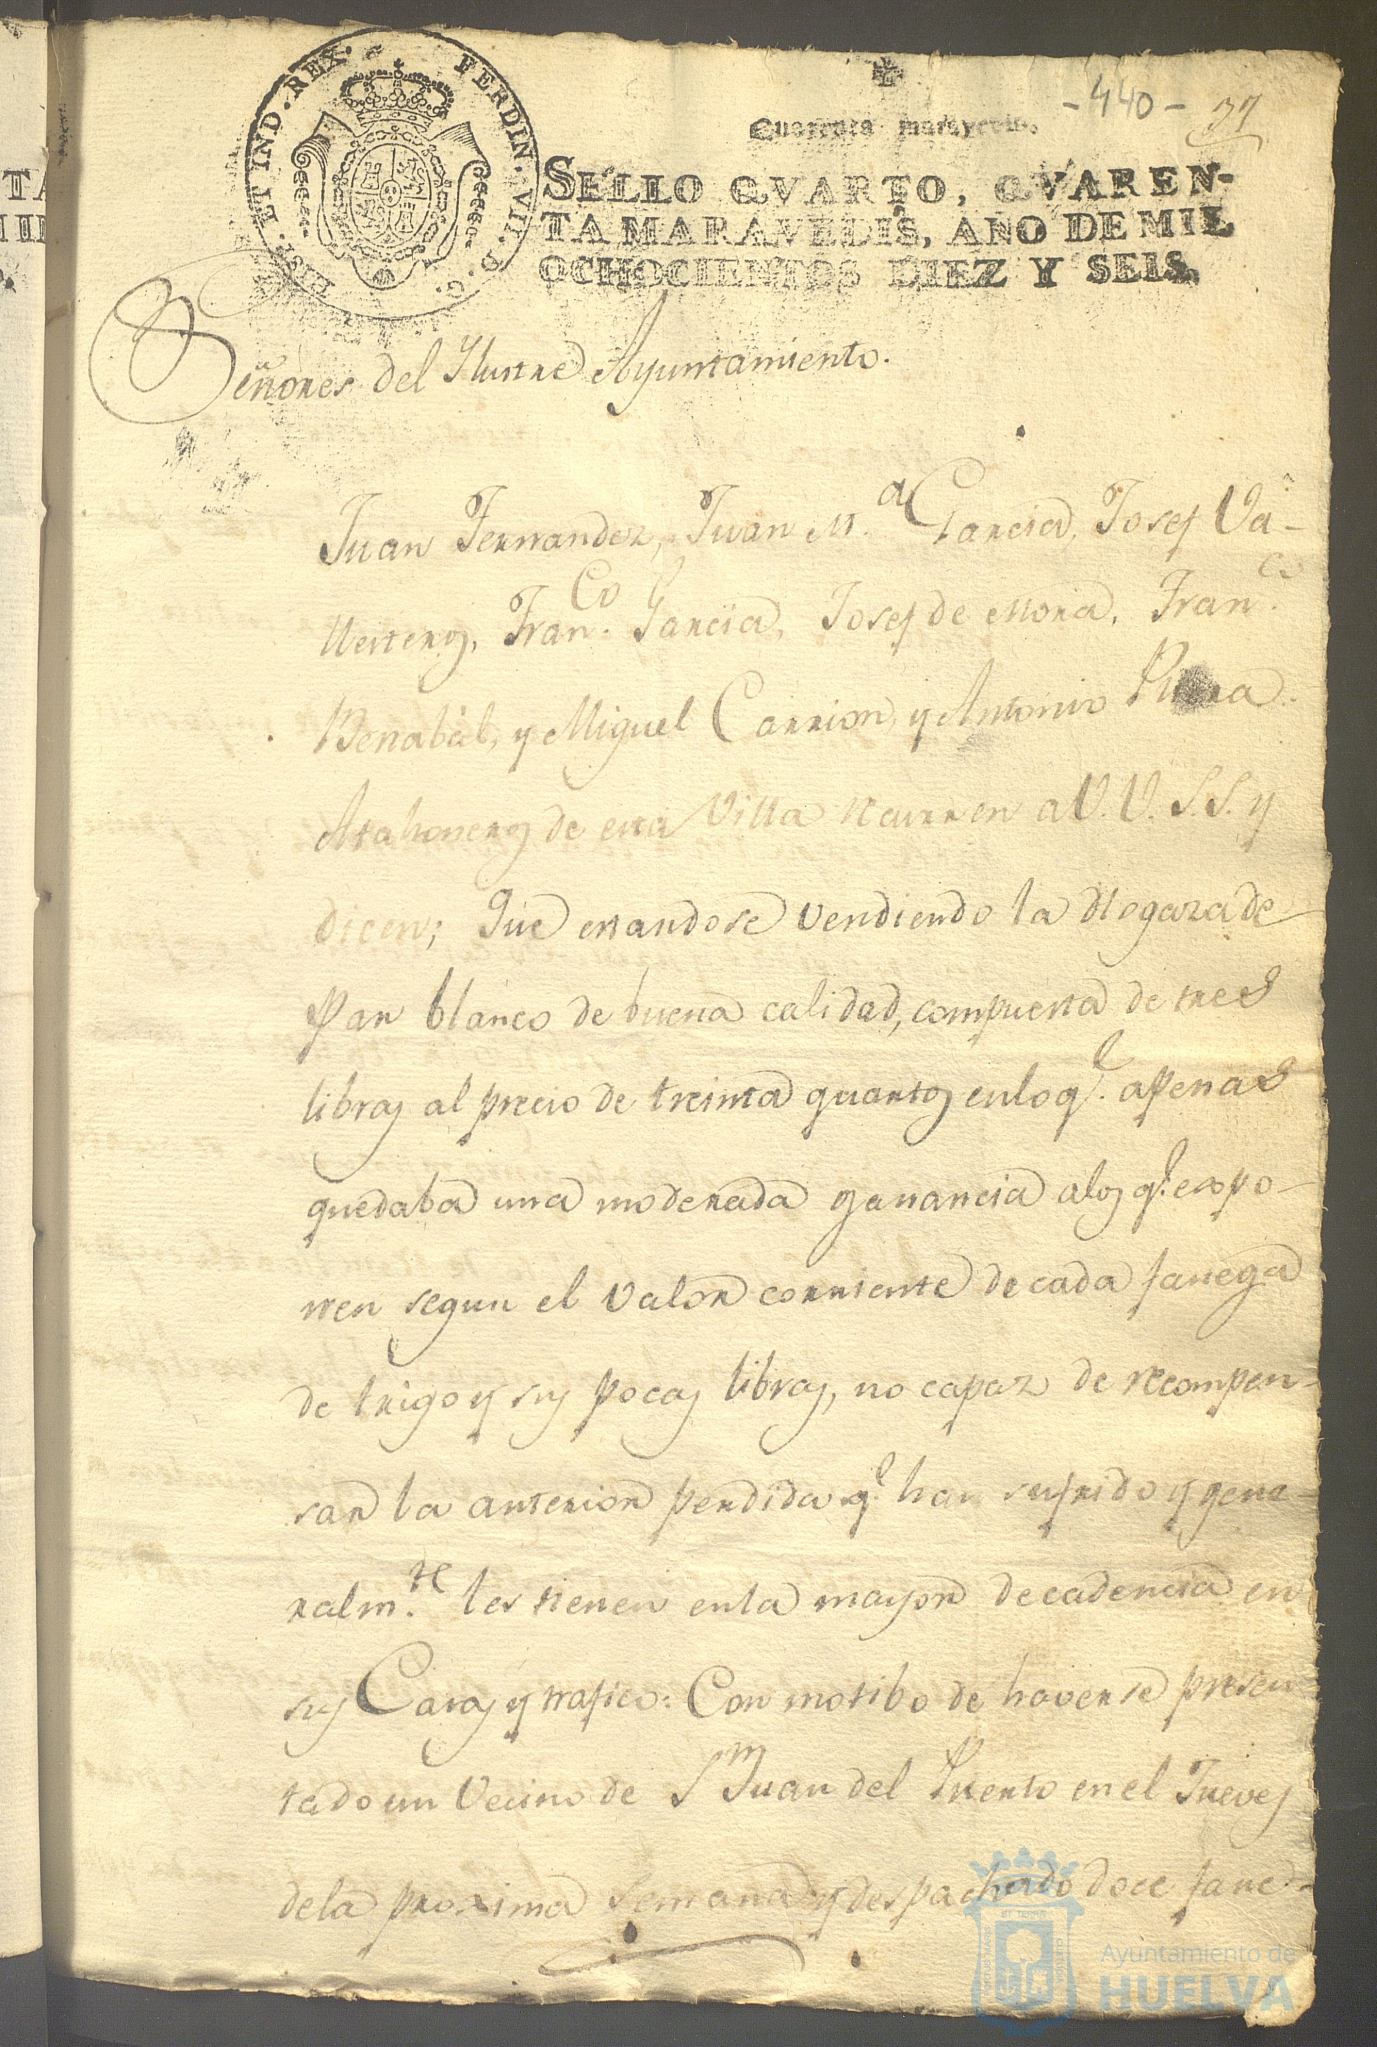 -440- 37
Cuarenta maravedis.
FERDIN. VII. D. G. ESP. ET IND. REX.
SELLO QVARTO, QVAREN-
TA MARAVEDIS, AÑO DE MIL
OCHOCIENTOS DIEZ Y SEIS.
Señores del Ylustre Ayuntamiento.
Juan Fernandez, Juan M.a Garcia, Josef Va-
llesteros, Fran.co Garcia, Josef de Mora, Fran.co
Benabàl, y Miguel Carrion, y Antonio
Atahoneros de esta Villa recurren a V.V. S.S. y
dicen; Que estandose vendiendo la Hogaza de
Pan blanco de buena calidad, compuesta de tres
libras al precio de treinta quartos en lo q.e apenas
quedaba una moderada ganancia a los q.e expo-
nen segun el valor corriente de cada fanega
de trigo y sus pocas libras, no capaz de recompen-
sar la anterior perdida q.e han sufrido y gene-
ralm.te les tienen en la mayor decadencia en
sus Casas y trafico: Con motibo de haverse presen-
tado un Vecino de S.n Juan del Puerto en el Jueves
de la proxima semana y despachado doce fane-
Ayuntamiento de
HUELVA